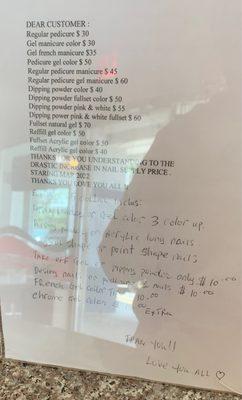 DEAR CUSTOMER :
Regular pedicure $ 30
Gel manicure color $ 30
Gel french manicure $35
Pedicure gel color $ 50
Regular pedicure manicure $ 45
Regular pedicure gel manicure $ 60
Dipping powder color $ 40
Dipping powder fullset color $ 50
Dipping powder pink & white $ 55
Dipping power pink & white fullset $ 60
Fullset natural gel $ 70
Reffill gel color $ 50
Fullset Acrylic gel color $ 50
Reffill Acrylic gel color $ 40
THANKS FOR YOU UNDERSTANDING TO THE
DRASTIC INCREASE IN NAIL SUPPLY PRICE .
STARING MAR 2022
THANKS YOU LOVE YOU ALL
gel color 3 color up.
Acrylic long nails
shape or point shape nails
Take off Dipping powder only $ 10.00
nails no nails $ 10.00
French Gel color 10.00
chrome Gel color Extra
Thank you!!
Love you ALL ♡